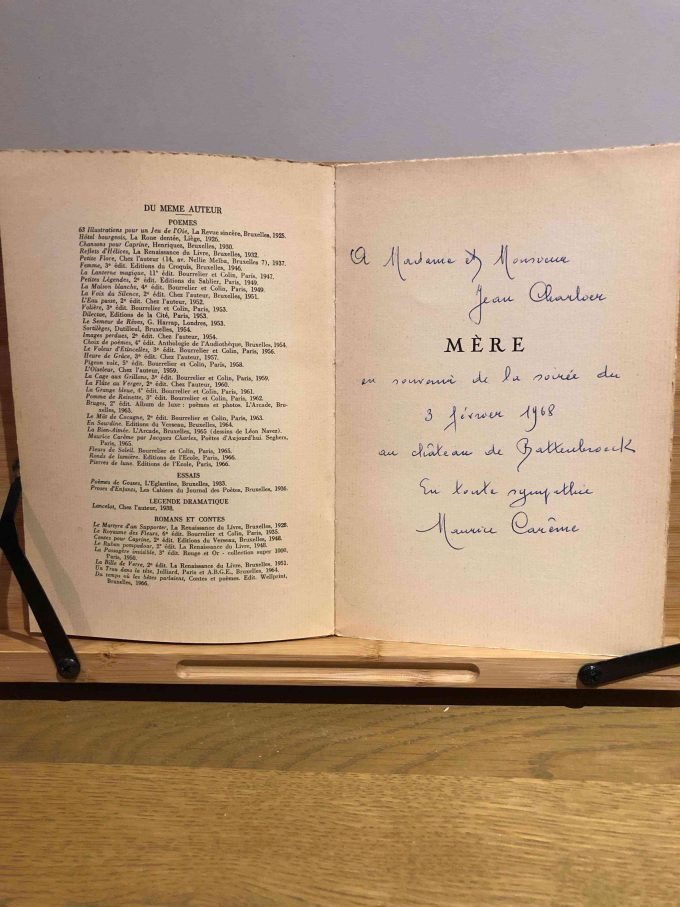 DU MEME AUTEUR
POEMES
63 Illustrations pour un Jeu de l'Oie, La Revue sincère, Bruxelles, 1925.
Hôtel bourgeois, La Roue dentée, Liège, 1926.
Chansons pour Caprine, Henriquez, Bruxelles, 1930.
Reflets d'Hélices, La Renaissance du Livre, Bruxelles, 1932.
Petite Flore, Chez l'auteur (14, av. Nellie Melba, Bruxelles 7), 1937.
Femme, 3e édit. Editions du Croquis, Bruxelles, 1946.
La Lanterne magique, 11e édit. Bourrelier et Colin, Paris, 1947.
Petites Légendes, 2e édit. Editions du Sablier, Paris, 1949.
La Maison blanche, 4e édit. Bourrelier et Colin, Paris, 1949.
La Voix du Silence, 2e édit. Chez l'auteur, Bruxelles, 1951.
L'Eau passe, 2e édit. Chez l'auteur, 1952.
Volière, 3e édit. Bourrelier et Colin, Paris, 1953.
Dilectae, Editions de la Cité, Paris, 1953.
Le Semeur de Rêves, G. Harrap, Londres, 1953.
Sortilèges, Dutilleul, Bruxelles, 1954.
Images perdues, 2e édit. Chez l'auteur, 1954.
Choix de poèmes, 4e édit. Anthologie de l'Audiothèque, Bruxelles, 1954.
Le Voleur d'Etincelles, 3e édit. Bourrelier et Colin, Paris, 1956.
Heure de Grâce, 3e édit. Chez l'auteur, 1957.
Pigeon vole, 5e édit. Bourrelier et Colin, Paris, 1958.
L'Oiseleur, Chez l'auteur, 1959.
La Cage aux Grillons, 3e édit. Bourrelier et Colin, Paris, 1959.
La Flûte au Verger, 2e édit. Chez l'auteur, 1960.
La Grange bleue, 4e édit. Bourrelier et Colin, Paris, 1961.
Pomme de Reinette, 3e édit. Bourrelier et Colin, Paris, 1962.
Bruges, 2e édit. Album de luxe : poèmes et photos. L'Arcade, Bruxelles, 1963.
Le Mât de Cocagne, 2e édit. Bourrelier et Colin, Paris, 1963.
En Sourdine. Editions du Verseau, Bruxelles, 1964.
La Bien-Aimée. L'Arcade, Bruxelles, 1965 (dessins de Léon Navez).
Maurice Carême par Jacques Charles, Poètes d'Aujourd'hui. Seghers,
Paris, 1965.
Fleurs de Soleil. Bourrelier et Colin, Paris, 1965.
Ronds de lumière. Editions de l'Ecole, Paris, 1966.
Pierres de lune. Editions de l'Ecole, Paris, 1966.
ESSAIS
Poèmes de Gosses, L'Eglantine, Bruxelles, 1933.
Proses d'Enfants, Les Cahiers du Journal des Poètes, Bruxelles, 1936.
LEGENDE DRAMATIQUE
Lancelot, Chez l'auteur, 1938.
ROMANS ET CONTES
Le Martyre d'un Supporter, La Renaissance du Livre, Bruxelles, 1928.
Le Royaume des Fleurs, 6e édit. Bourrelier et Colin, Paris, 1935.
Contes pour Caprine, 2e édit. Editions du Verseau, Bruxelles, 1948.
Orladour, 2e édit. La Renaissance du Livre, 1948.
La Passagère invisible, 3e édit. Rouge et Or - collection super 1000.
Paris, 1950.
La Bille de Verre, 2e édit. La Renaissance du Livre, Bruxelles, 1951.
Un Trou dans la tête, Julliard, Paris et A.B.G.E., Bruxelles, 1964.
Du temps où les bêtes parlaient, Contes et poèmes. Edit. Wellprint,
Bruxelles, 1966.
A Madame et Monsieur
Jean Charlier
MÈRE
en souvenir de la soirée du
3 février 1968
au château de Battenbroeck
En toute sympathie
Maurice Carême